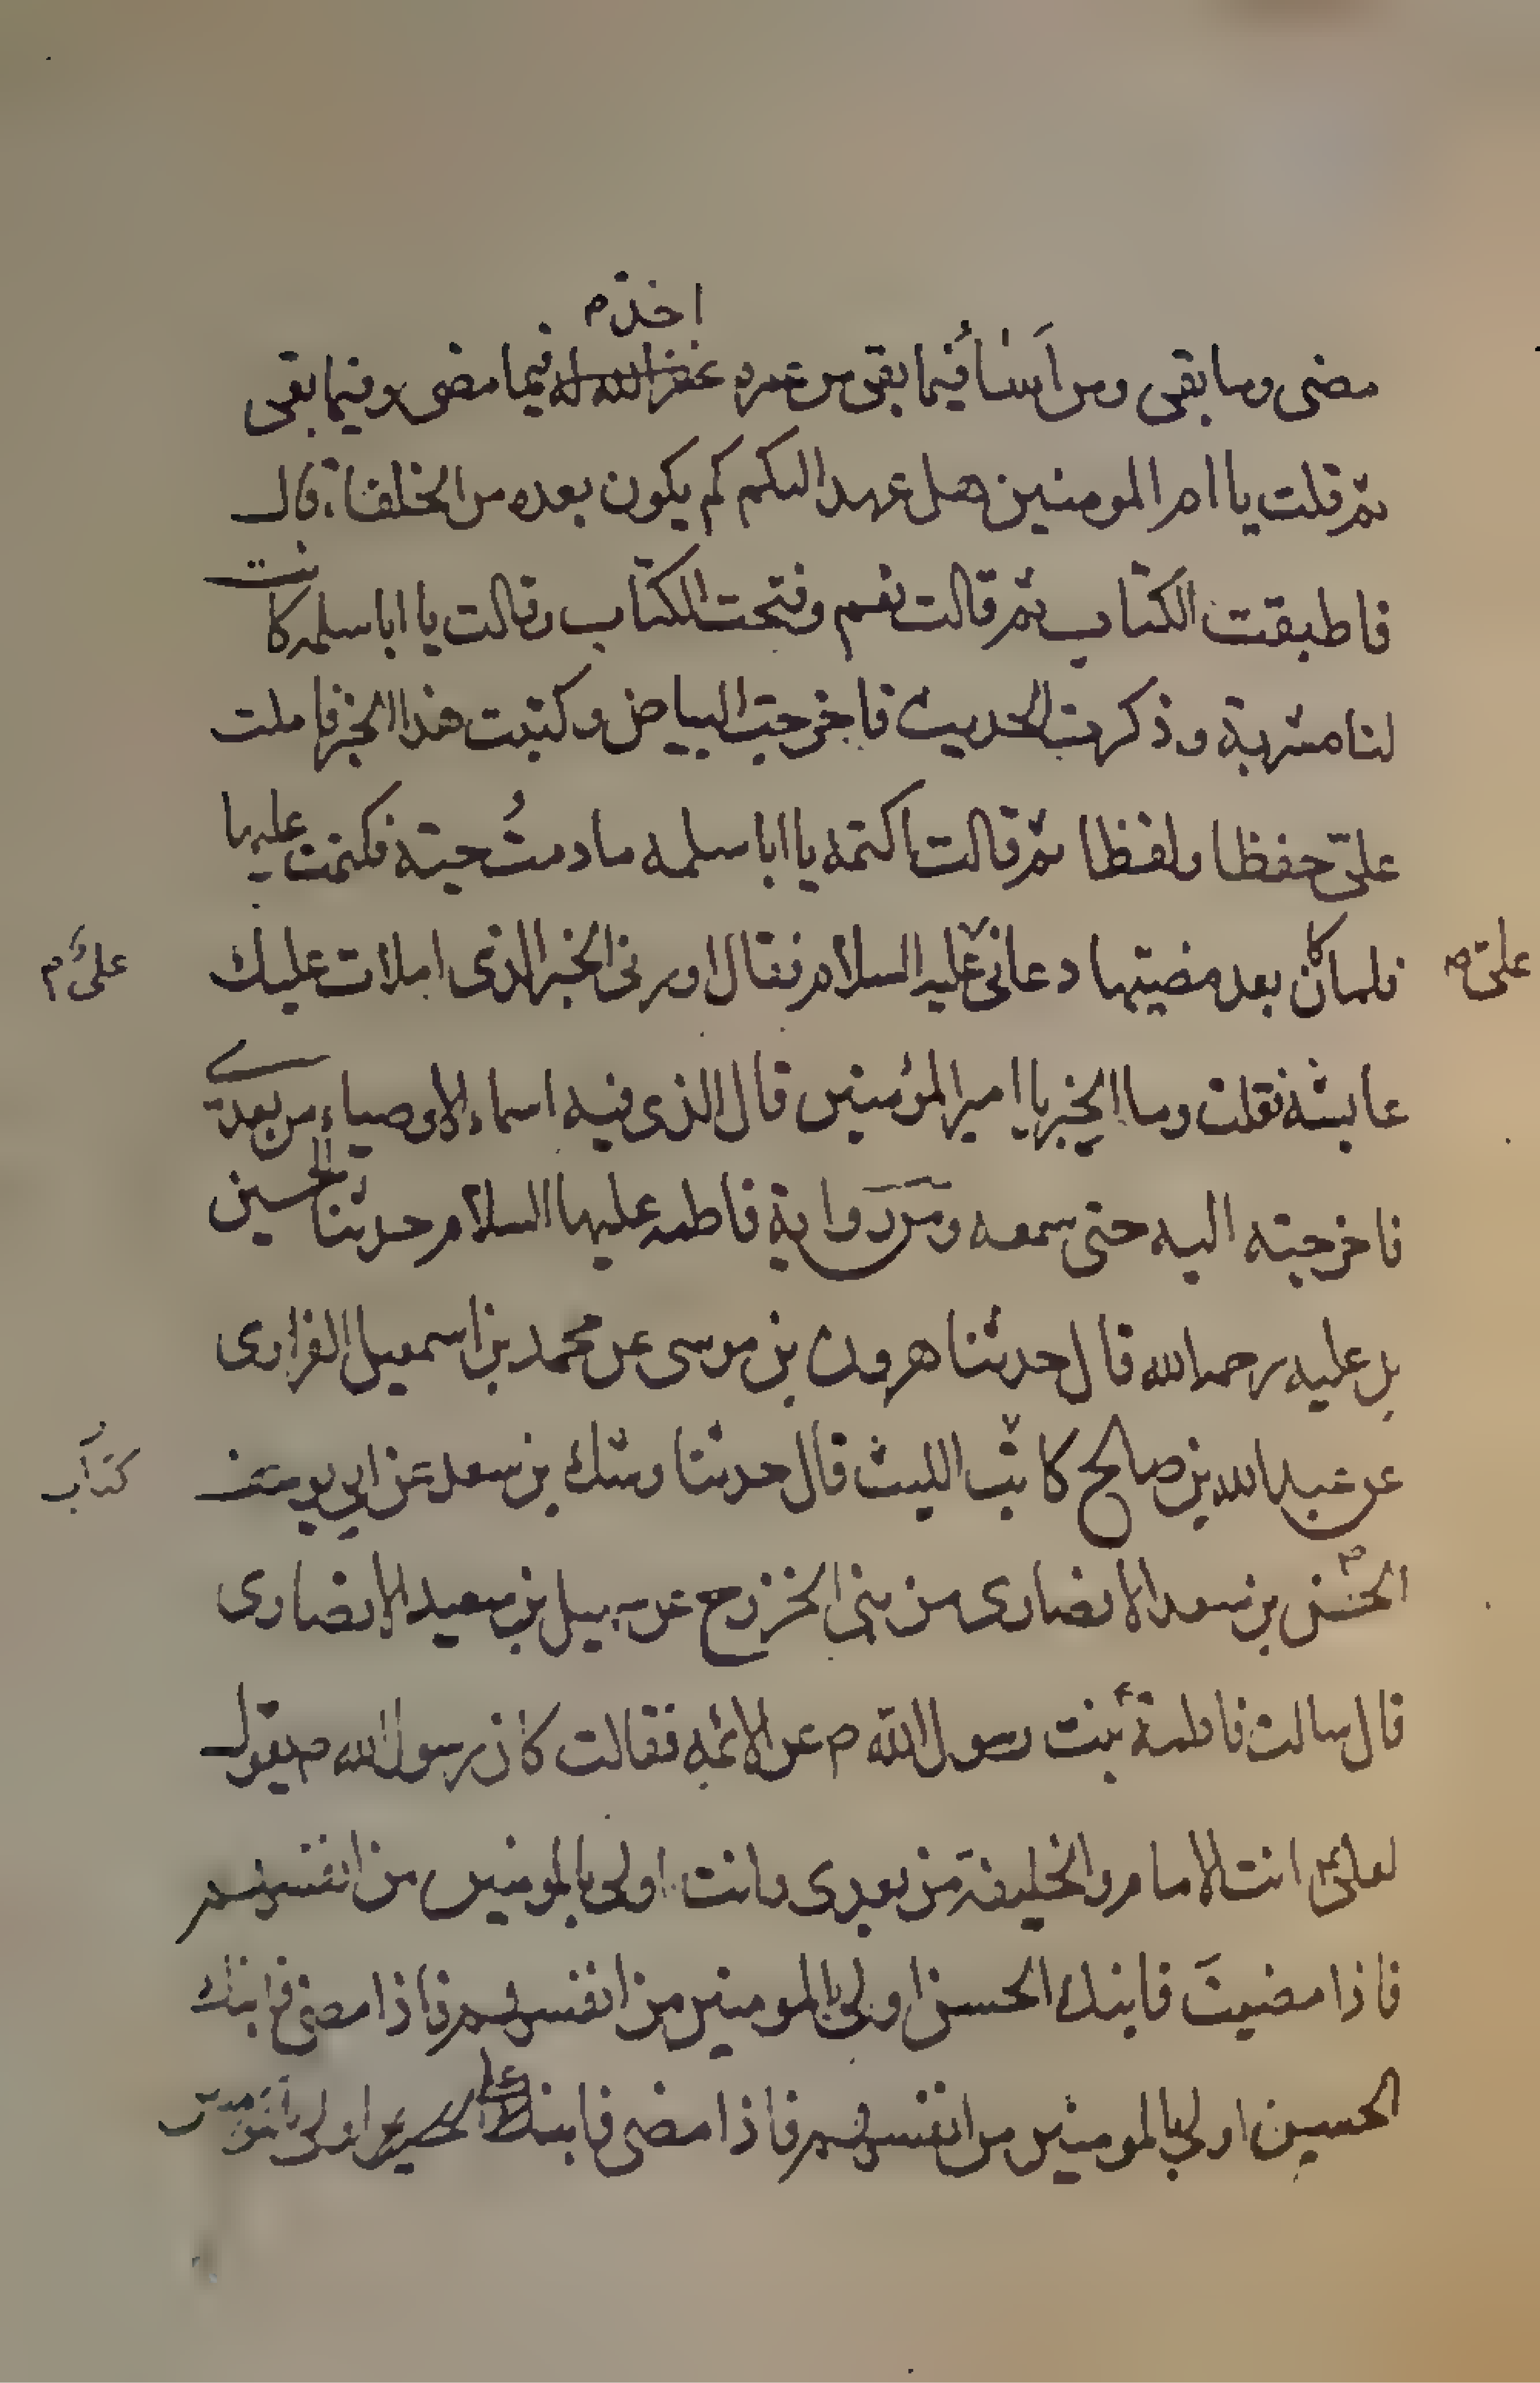 اخذ م
مضى وما بقى ومن اَساُ فيما بقى من عمره غفر الله له فيما مضى وفيما بقى
ثم قلت يا ام المومنين هل عهد اليكم كم يكون بعده من الخلفاء قال
فاطبقت الكتاب ثم قالت نعم وفتحت الكتاب وقالت يا ابا سلمه كانت
لنا مشربة وذكرت الحديث فاخرجت البياض وكتبت هذا الخبر فاملت
علىّ حفظا ولفظا ثم قالت اكتمه يا ابا سلمه ما دمتُ حيته فكتمت عليها
فلما كان بعد مضيتها دعانى عليه السلام فقال اورنى الخبر الذى املات عليك
علىّ م
علىّ م
عايشه فقلت وما الخبر يا امير المؤمنين قال الذى فيه اسماء الاوصياء من بعدى
فاخرجته اليه حتى سمعه ومن رواية فاطمه عليها السلام حدثنا الحسين
بن عليه رحمه الله قال حدثنا هرون بن موسى عن محمد بن اسمعيل الفزارى
عن عبد الله بن صالح كاتب الليث قال حدثنا رشك بن سعد عن ابي يوسف
كتاب
الحسنى بن سعد الانصارى من بنى الخزرج عن سهيل بن سعيد الانصارى
قال سالت فاطمة بنت رسول الله ص عن الائمه فقالت كان رسول الله ص يقول
لعلىّ انت الامام والخليفة من بعدى وانت اولى بالمومنين من انفسهم
فاذا مضيتَ فابنك الحسن اولى بالمومنين من انفسهم فاذا مضى فابنك
الحسين اولى بالمومنين من انفسهم فاذا مضى فابنك على بن الحسين اولى بالمومنين